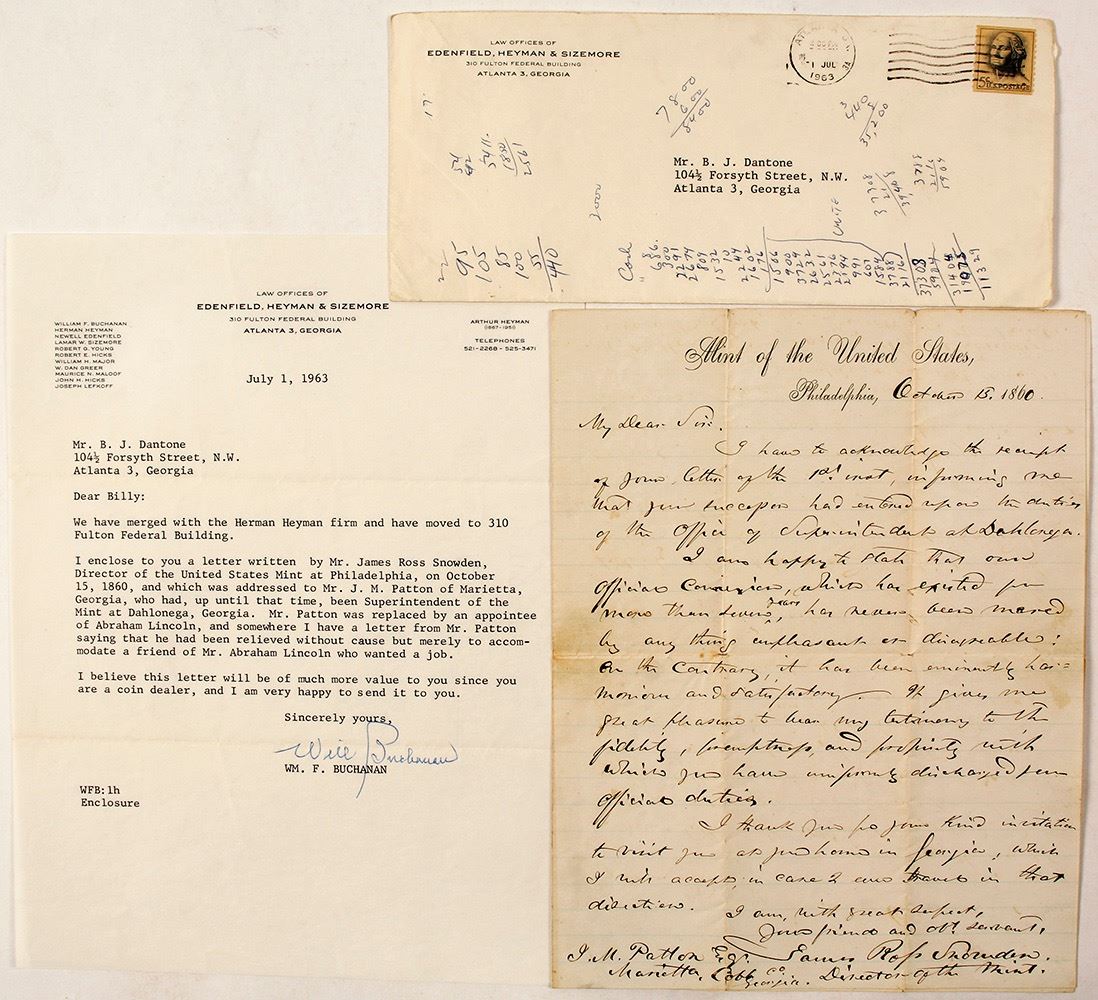 LAW OFFICES OF
EDENFIELD, HEYMAN & SIZEMORE
310 FULTON FEDERAL BUILDING
ATLANTA 3, GEORGIA
1 JUL
1963
5¢ U.S. POSTAGE
Mr. B. J. Dantone
104½ Forsyth Street, N.W.
Atlanta 3, Georgia
7800
600
8400
440
8
35,200
1957
1880
2000
Cash
95
105
85
100
55
440
37308
LAW OFFICES OF
EDENFIELD, HEYMAN & SIZEMORE
310 FULTON FEDERAL BUILDING
ATLANTA 3, GEORGIA
WILLIAM F. BUCHANAN
HERMAN HEYMAN
NEWELL EDENFIELD
LAMAR W. SIZEMORE
ROBERT G. YOUNG
ROBERT E. HICKS
WILLIAM H. MAJOR
W. DAN GREER
MAURICE N. MALOOF
JOHN H. HICKS
JOSEPH LEFKOFF
ARTHUR HEYMAN
(1867-1951)
TELEPHONES
521-2268 - 525-3471
July 1, 1963
Mr. B. J. Dantone
104½ Forsyth Street, N.W.
Atlanta 3, Georgia
Dear Billy:
We have merged with the Herman Heyman firm and have moved to 310
Fulton Federal Building.
I enclose to you a letter written by Mr. James Ross Snowden,
Director of the United States Mint at Philadelphia, on October
15, 1860, and which was addressed to Mr. J. M. Patton of Marietta,
Georgia, who had, up until that time, been Superintendent of the
Mint at Dahlonega, Georgia. Mr. Patton was replaced by an appointee
of Abraham Lincoln, and somewhere I have a letter from Mr. Patton
saying that he had been relieved without cause but merely to accom-
modate a friend of Mr. Abraham Lincoln who wanted a job.
I believe this letter will be of much more value to you since you
are a coin dealer, and I am very happy to send it to you.
Sincerely yours,
Will Buchanan
WM. F. BUCHANAN
WFB:lh
Enclosure
Mint of the United States,
Philadelphia, October 15. 1860.
My Dear Sir.
I have to acknowledge the receipt
of your letter of the 1st. inst, informing me
that your successor had entered upon the duties
of the Office of Superintendent at Dahlonega.
I am happy to state that our
Official Connexion, which has existed for
more than seven years, has never been marred
by any thing unpleasant or disagreeable:
On the Contrary, it has been eminently har=
monious and satisfactory. It gives me
great pleasure to bear my testimony to the
fidelity, promptness and propriety with
which you have uniformly discharged your
Official duties.
I thank you for your kind invitation
to visit you at your home in Georgia, which
I will accept, in case I am travel in that
direction.
I am, with great respect,
Your friend and obt. servant,
James Ross Snowden.
Director of the Mint.
J. M. Patton Esqr.
Marietta, Cobb Co.
Georgia.